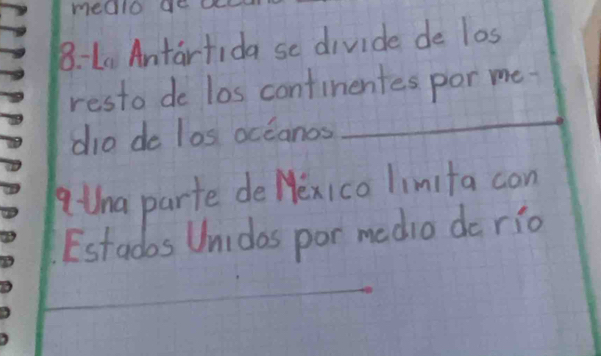 medio de
8.-La Antártida se divide de los
resto de los continentes por me-
dio de los océanos
9-Una parte de México limita con
.Estados Unidos por medio de río